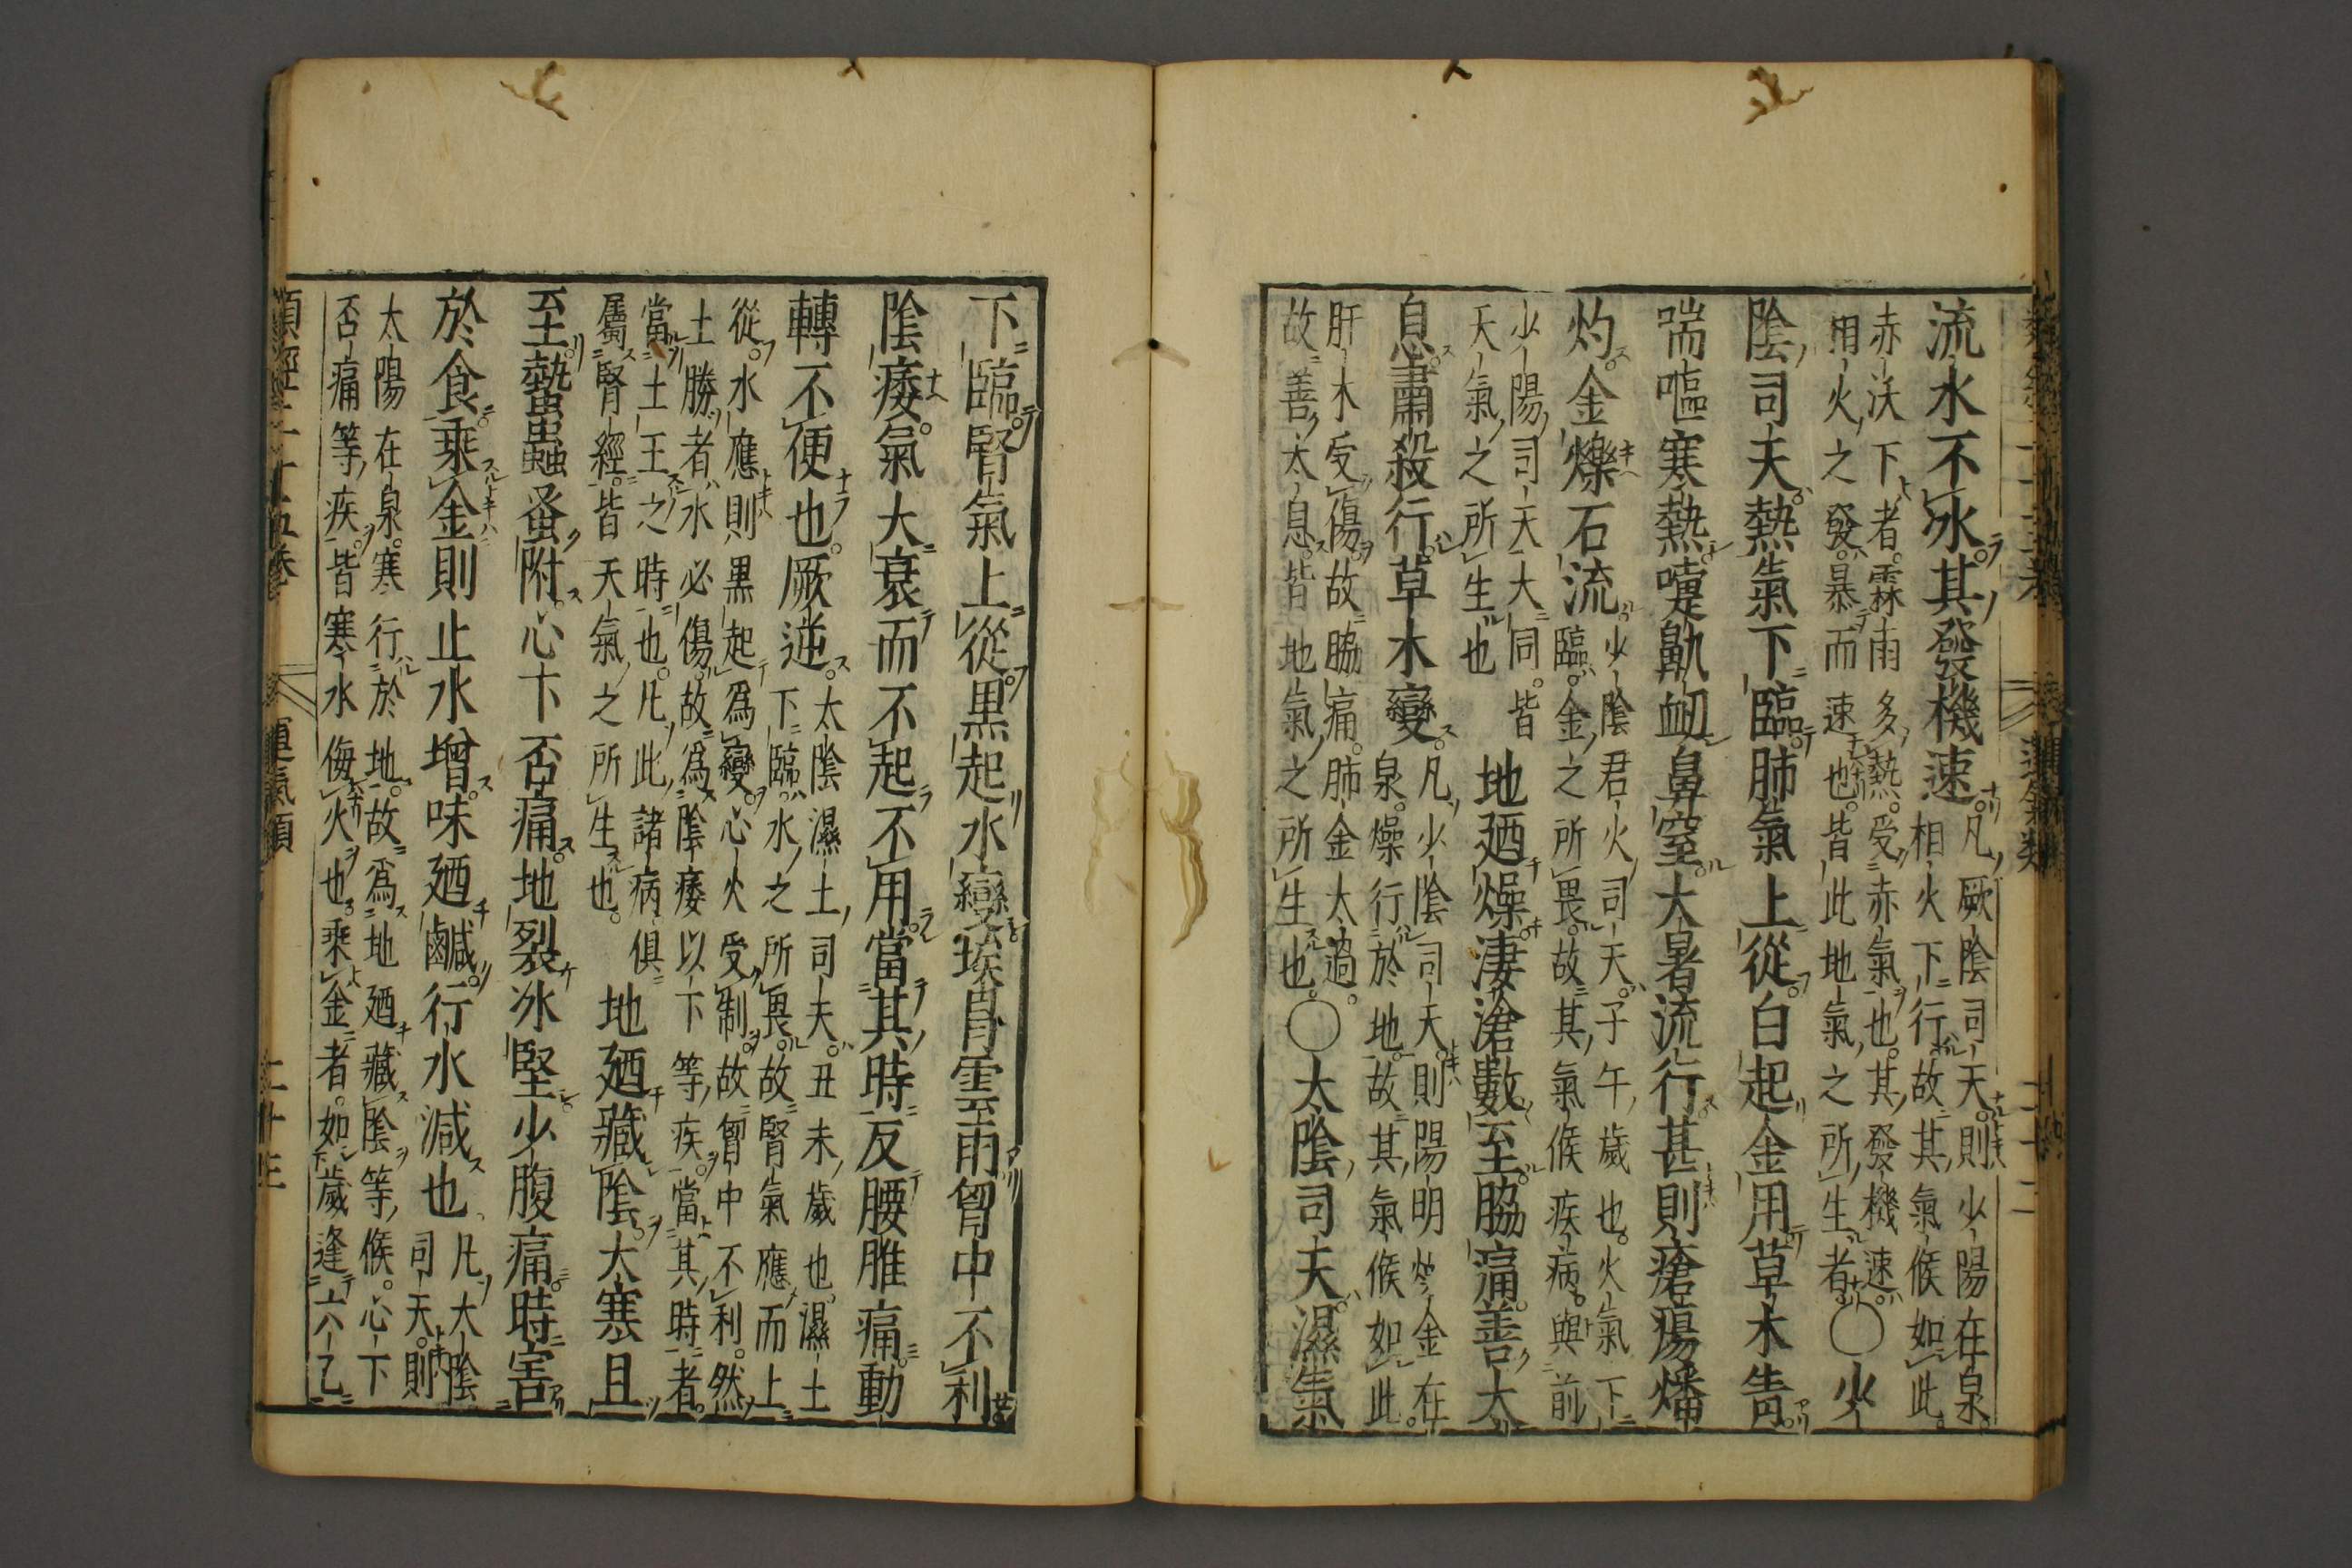 流水不冰其發機速凡厥陰司天則少陽在泉
相火下行故其氣候如此
赤沃下者霖雨多熱受赤氣也其發機速
相火之發暴而速也皆此地氣之所生者〇少
陰司天熱氣下臨肺氣上從白起金用草木眚
喘嘔寒熱嚏鼽衄鼻窒大暑流行甚則瘡瘍燔
灼金爍石流少陰君火司天子午歲也火氣下
臨金之所畏故其氣候疾病與前
少陽司天大同皆
天氣之所生也
地廼燥凄滄數至脇痛善太
息肅殺行草木變凡少陰司天則陽明燥金在
泉燥行於地故其氣候如此
肝木受傷故脇痛肺金太過
故善太息皆地氣之所生也〇太陰司天濕氣
下臨腎氣上從黑起水變埃冒雲雨胷中不利
陰痿氣大衰而不起不用當其時反腰脽痛動
轉不便也厥逆太陰濕土司天丑未歲也濕土
下臨水之所畏故腎氣應而上
從水應則黑起爲變心火受制故胷中不利然
土勝者水必傷故爲陰痿以下等疾當其時者
當土王之時也凡此諸病俱
屬腎經皆天氣之所生也
地廼藏陰大寒且
至蟄蟲蚤附心下否痛地裂冰堅少腹痛時害
於食乘金則止水增味廼鹹行水減也凡太陰
司天則
太陽在泉寒行於地故爲地廼藏陰等候心下
否痛等疾皆寒水侮火也乘金者如歲逢六乙
類經二十五卷 運氣類 二十三